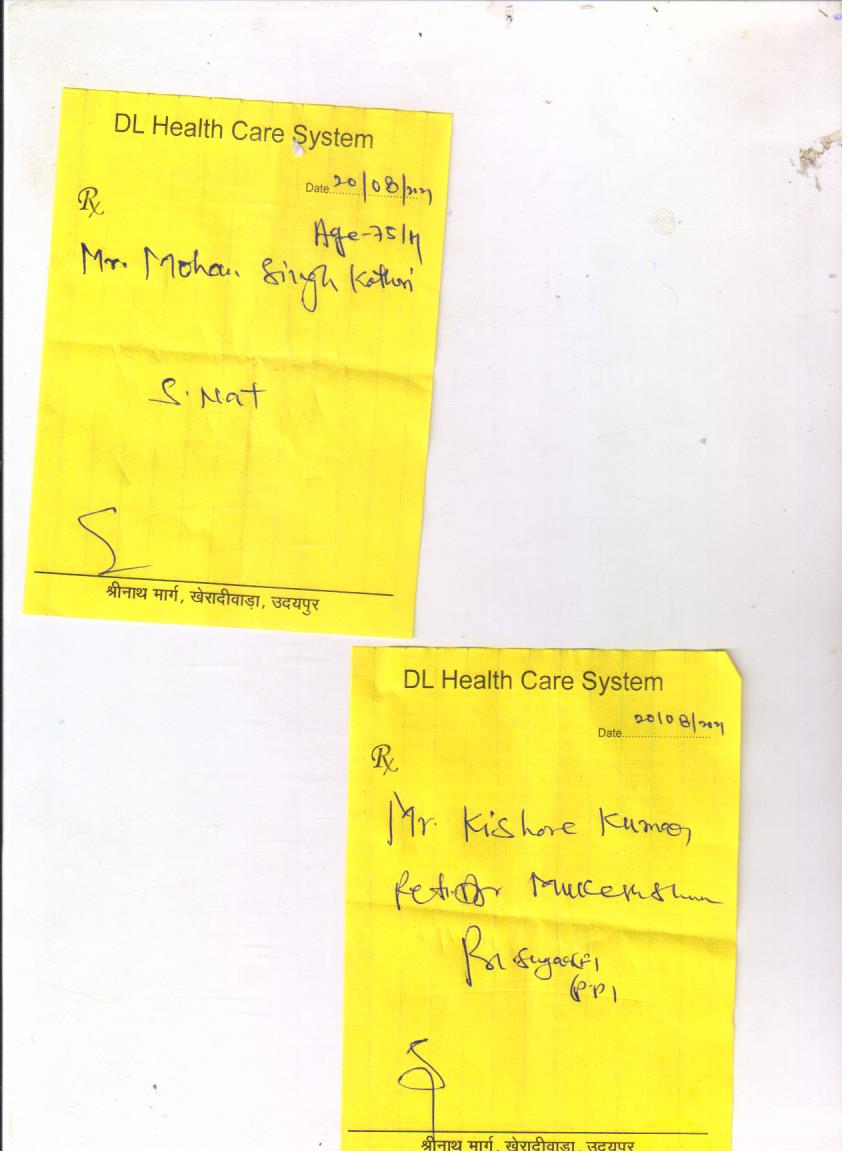 DL Health Care System
Date 20/08/2021
Rx
Age-75/M
Mr. Mohan Singh Kothari
S. Nat
श्रीनाथ मार्ग, खेरादीवाड़ा, उदयपुर
DL Health Care System
Date 20/08/2021
Rx
Mr. Kishore Kumar
Ref. Dr Mukesh
Bl. Sugar (F)
(P.P)
श्रीनाथ मार्ग, खेरादीवाड़ा, उदयपुर